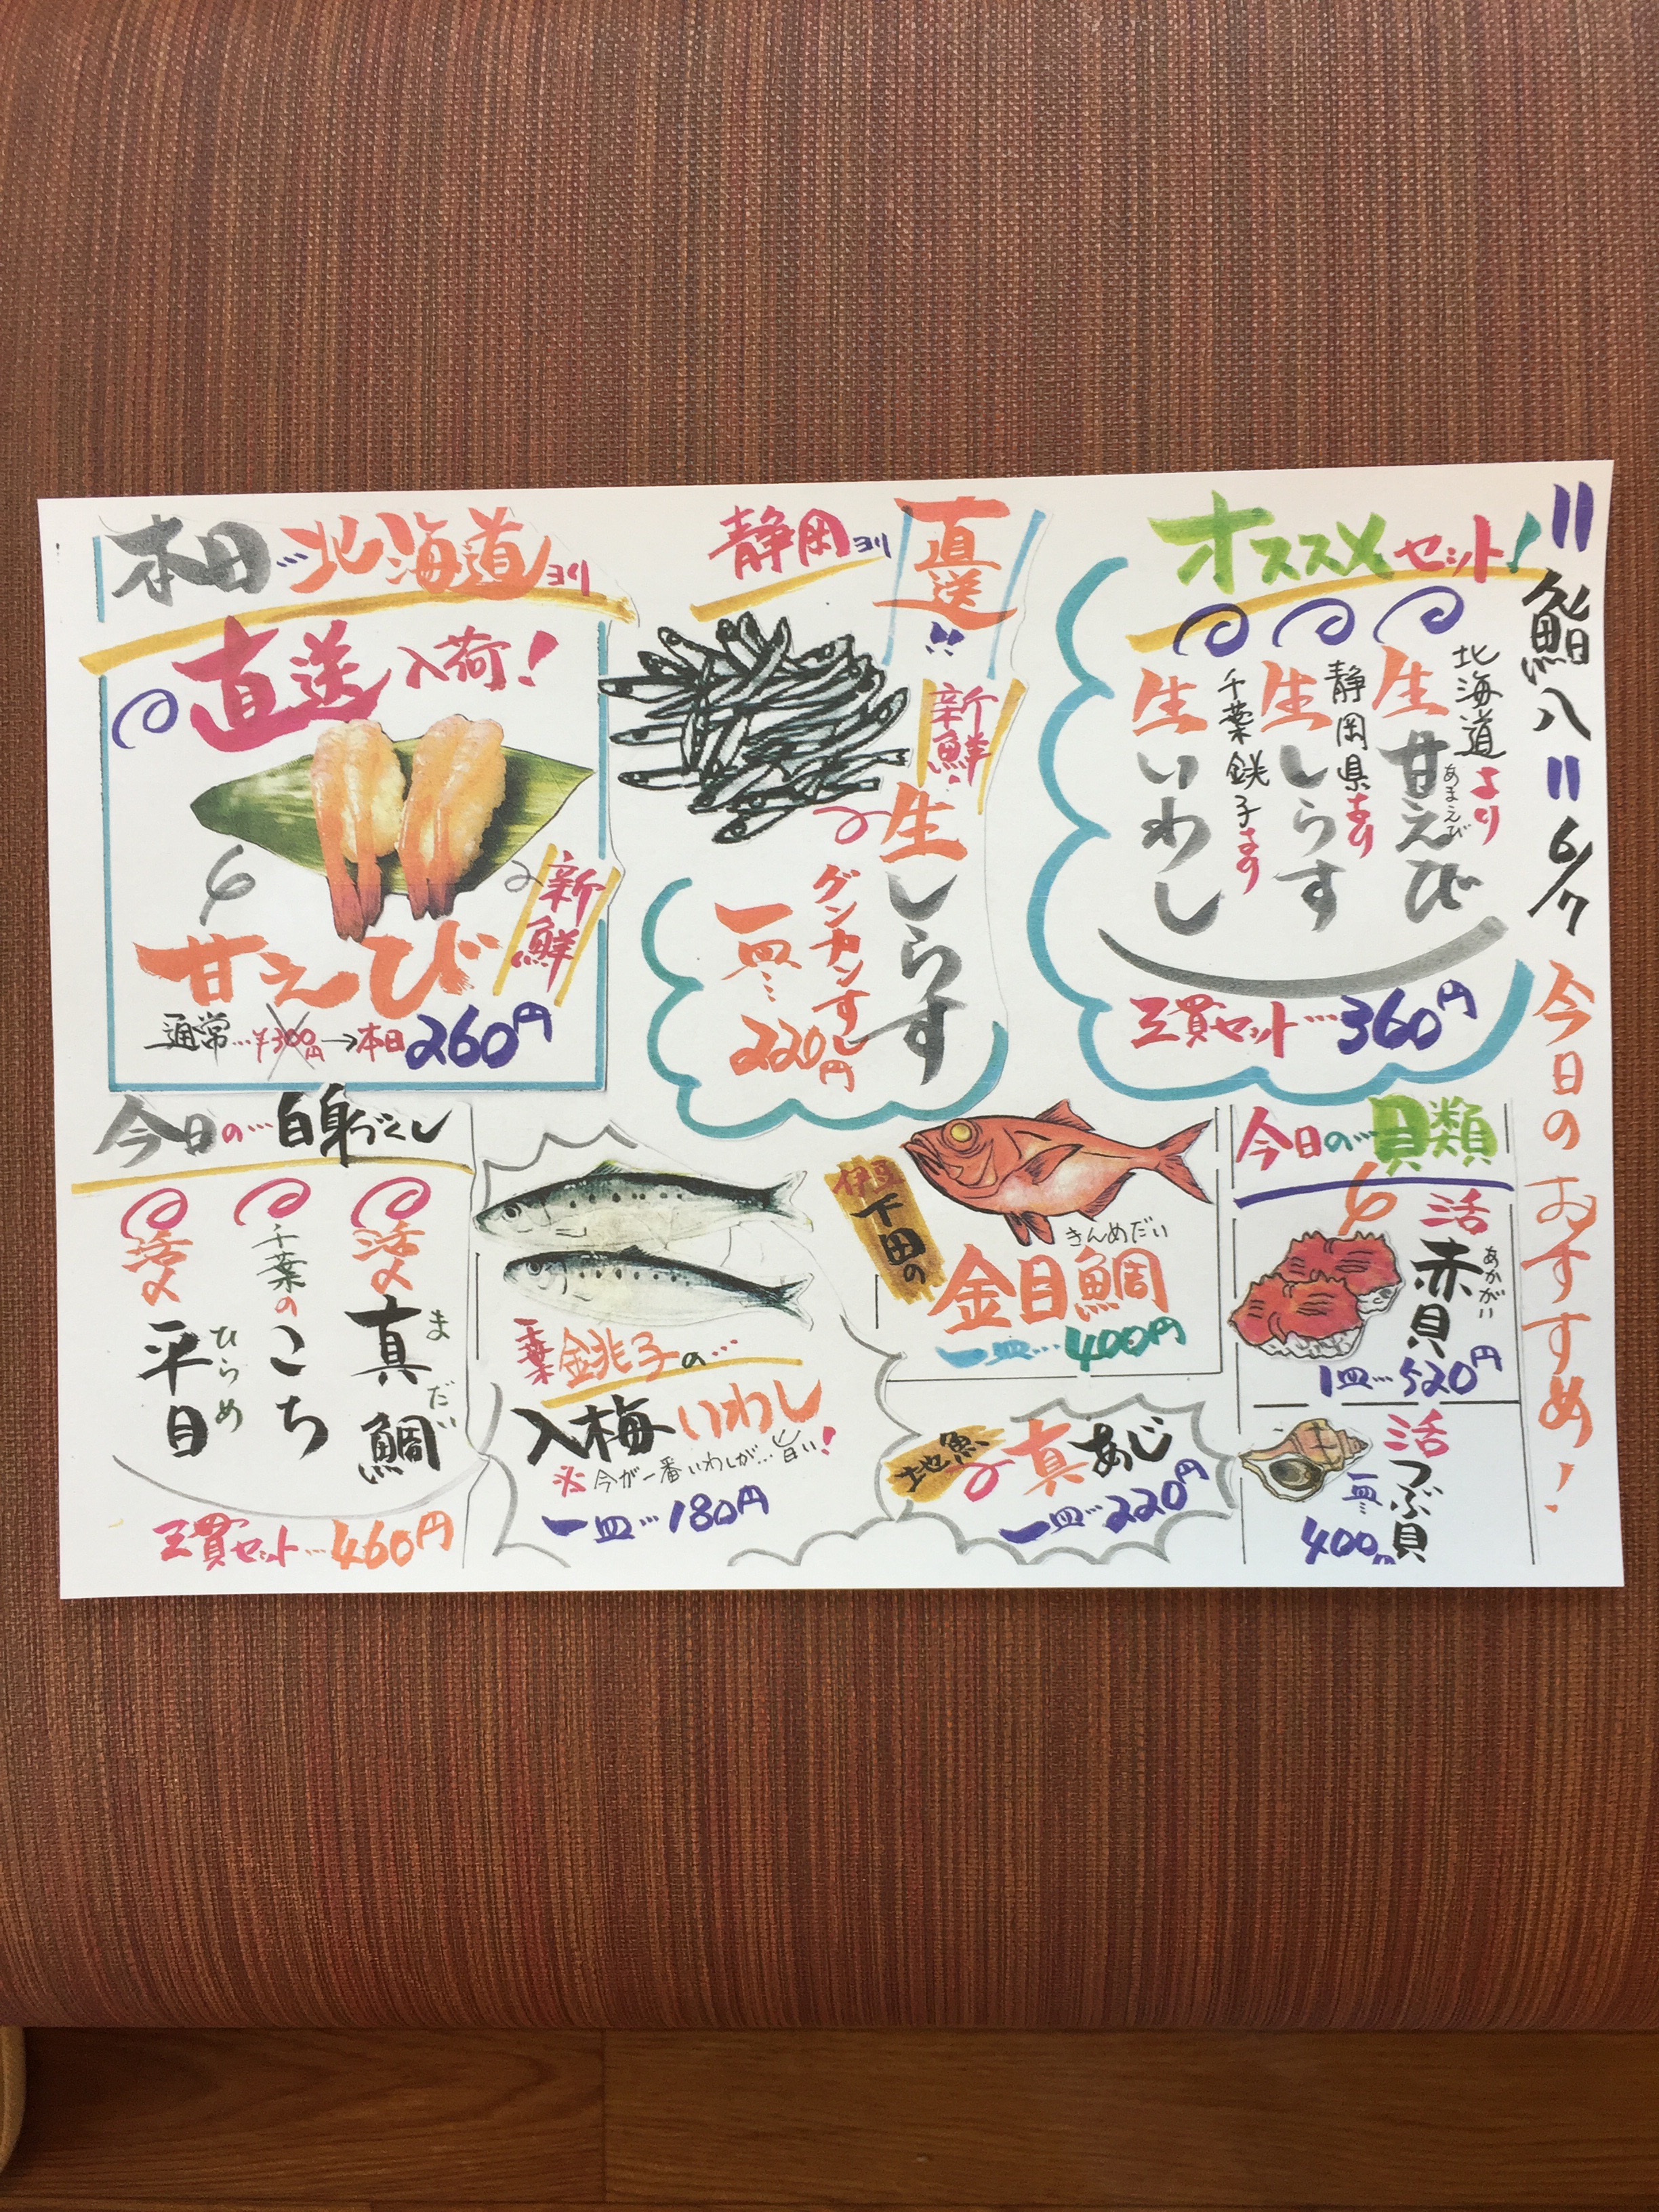 鮨八 6/7 今日のおすすめ!
オススメセット!
北海道より
生甘えび
あまえび
静岡県より
生しらす
千葉銚子より
生いわし
三貫セット…360円
静岡ヨリ
直送!!
新鮮!
生しらす
グンカンすし
一皿…220円
本日…北海道ヨリ
直送入荷!
新鮮
甘えび
通常…¥300円→本日260円
今日の…貝類
活
赤貝
あかがい
1皿…520円
活
つぶ貝
一皿…
400円
伊豆下田の
きんめだい
金目鯛
一皿…400円
地魚
真あじ
一皿…220円
千葉銚子の…
入梅いわし
※今が一番いわしが…旨い!
一皿…180円
今日の…白身づくし
活〆
真鯛
まだい
千葉の
こち
活〆
平目
ひらめ
三貫セット…460円